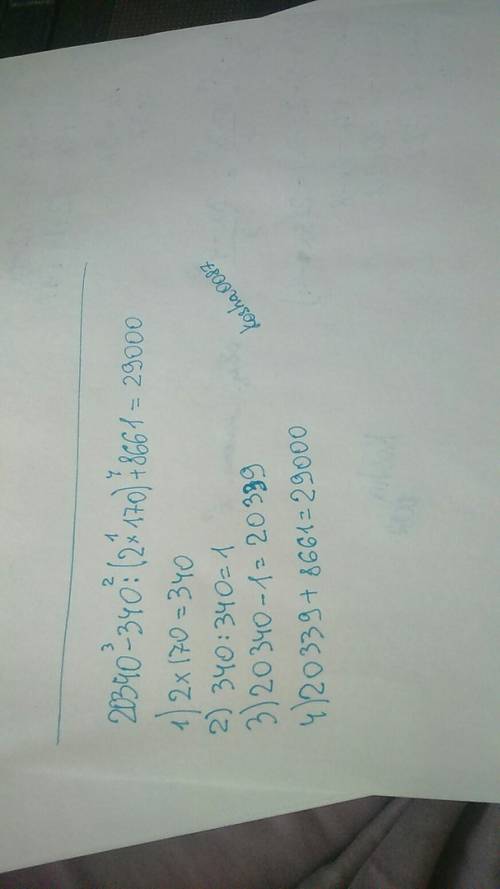 20340³-340²:(2×¹170)⁴+8661=29000
1) 2×170=340
2) 340:340=1
3) 20340-1=20339
4) 20339+8661=29000
kosha0087